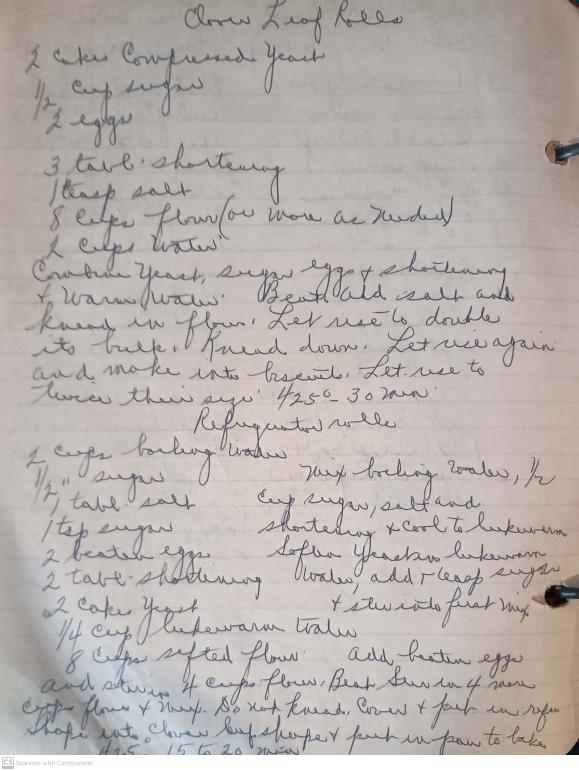 Clover Leaf Rolls
2 cakes Compressed Yeast
1/2 cup sugar
2 eggs
3 tabl. shortening
1 teasp salt
8 cups flour (or more as needed)
2 cups water
Combine Yeast, sugar eggs & shortening
& Warm Water. Beat, add salt and
knead in flour. Let rise to double
its bulk. Knead down. Let rise again
and make into biscuits. Let rise to
twice their size 425° - 30 min.
Refrigerator rolls
2 cups boiling water
1/2 " sugar
1 tabl. salt
1 tsp sugar
2 beaten eggs
2 tabl. shortening
2 cakes Yeast
1/4 cup lukewarm Water
8 cups sifted flour.
Mix boiling water, 1/2
cup sugar, salt and
shortening & cool to lukewarm
Soften Yeast in lukewarm
water, add 1 teasp sugar
& stir into first mix.
add beaten eggs
and stir in 4 cups flour. Beat Stir in 4 more
cups flour & mix. Do not knead. Cover & put in refri
Shape into Clover leaf shape & put in pan to bake
425 15 to 20 min
CS Scanned with CamScanner